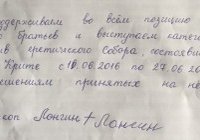 оддерживаем во всём позицию
о братьев и выступаем катего
ив еретического Собора, состоявш
Крите с 16.06.2016 по 27.06.20
ешениям принятых на нё
коп Лонгин + Лонгин